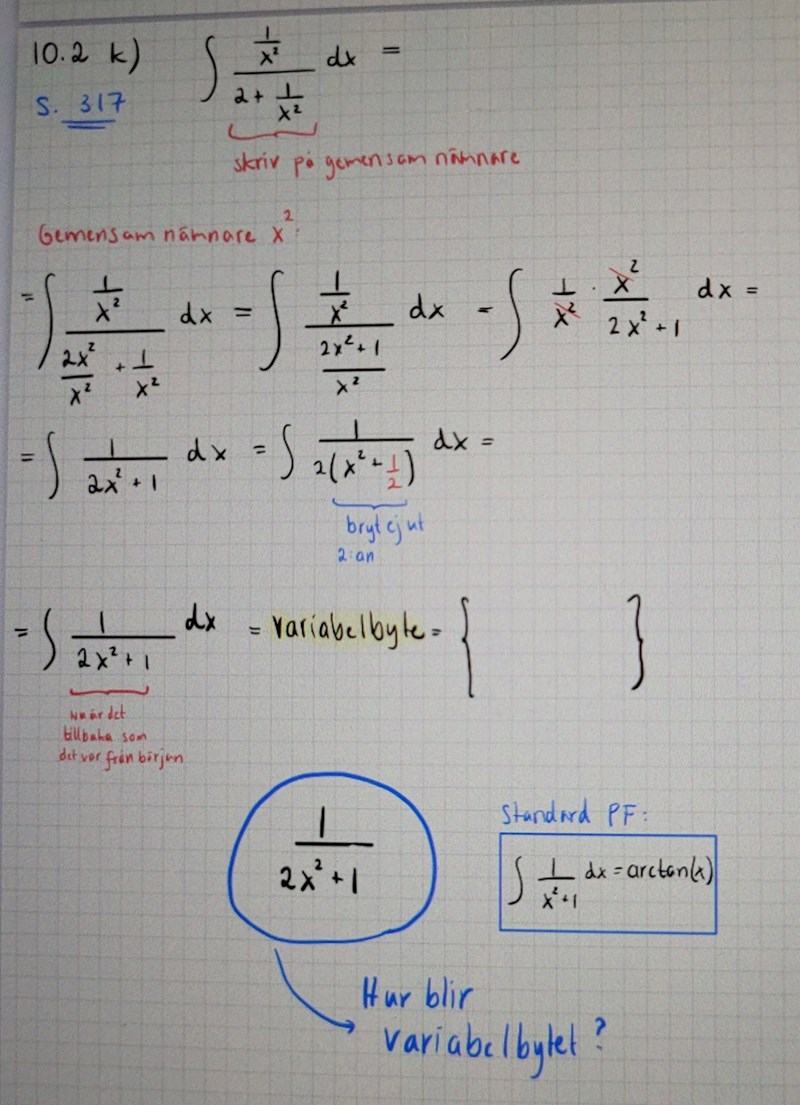 10.2 k) ∫ (1/x²)/(2 + 1/x²) dx =
s. 317
skriv på gemensam nämnare
Gemensam nämnare x²:
= ∫ (1/x²)/(2x²/x² + 1/x²) dx = ∫ (1/x²)/((2x²+1)/x²) dx = ∫ 1/x² · x²/(2x²+1) dx =
= ∫ 1/(2x²+1) dx = ∫ 1/(2(x²+1/2)) dx =
bryt ej ut
2:an
= ∫ 1/(2x²+1) dx = variabelbyte = { }
Nu är det
tillbaka som
det var från början
1/(2x²+1)
Standard PF:
∫ 1/(x²+1) dx = arctan(x)
Hur blir
variabelbytet?